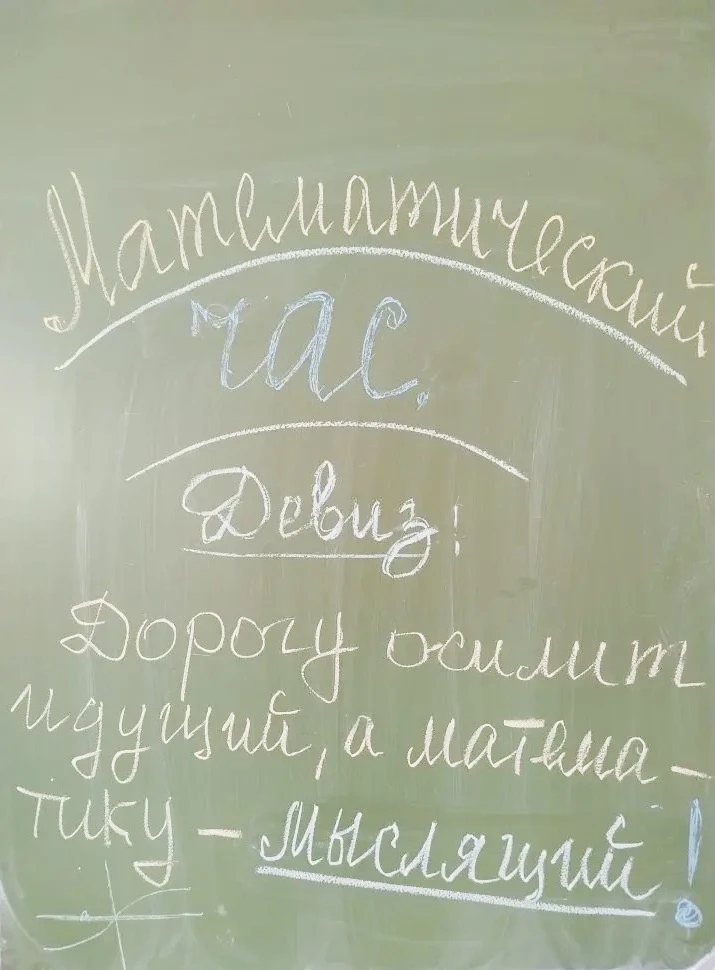 Математический
час.
Девиз:
Дорогу осилит
идущий, а матема-
тику - мыслящий!